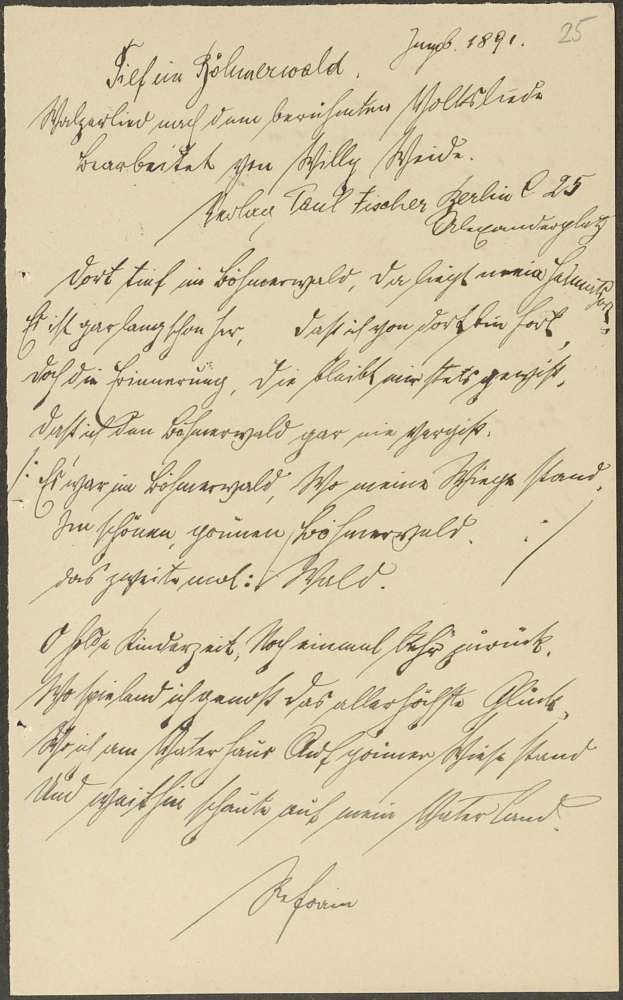 25
1891.
Tief im Böhmerwald.
Walzerlied nach dem berühmten Volksliede
bearbeitet von Willy Weide.
Verlag Paul Fischer Berlin C 25
Alexanderplatz
Dort tief im Böhmerwald, da liegt mein Heimatsort,
Es ist gar lang schon her, daß ich von dort bin fort,
Doch die Erinnerung, die bleibt mir stets gewiß,
daß ich den Böhmerwald gar nie vergiß.
/: Es war im Böhmerwald, Wo meine Wiege stand,
Im schönen, grünen Böhmerwald. :/
das zweite mal: Wald.
O holde Kinderzeit, Noch einmal kehr zurück,
Wo spielend ich genoß das allerhöchste Glück,
Wo ich am Vaterhaus Auf grüner Wiese stand
Und weithin schaute auf mein Vaterland.
Refrain